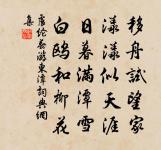 移舟試望家
漾漾似天涯
日暮滿潭雪
白鷗和柳花
盧綸春游東潭詞典網
集